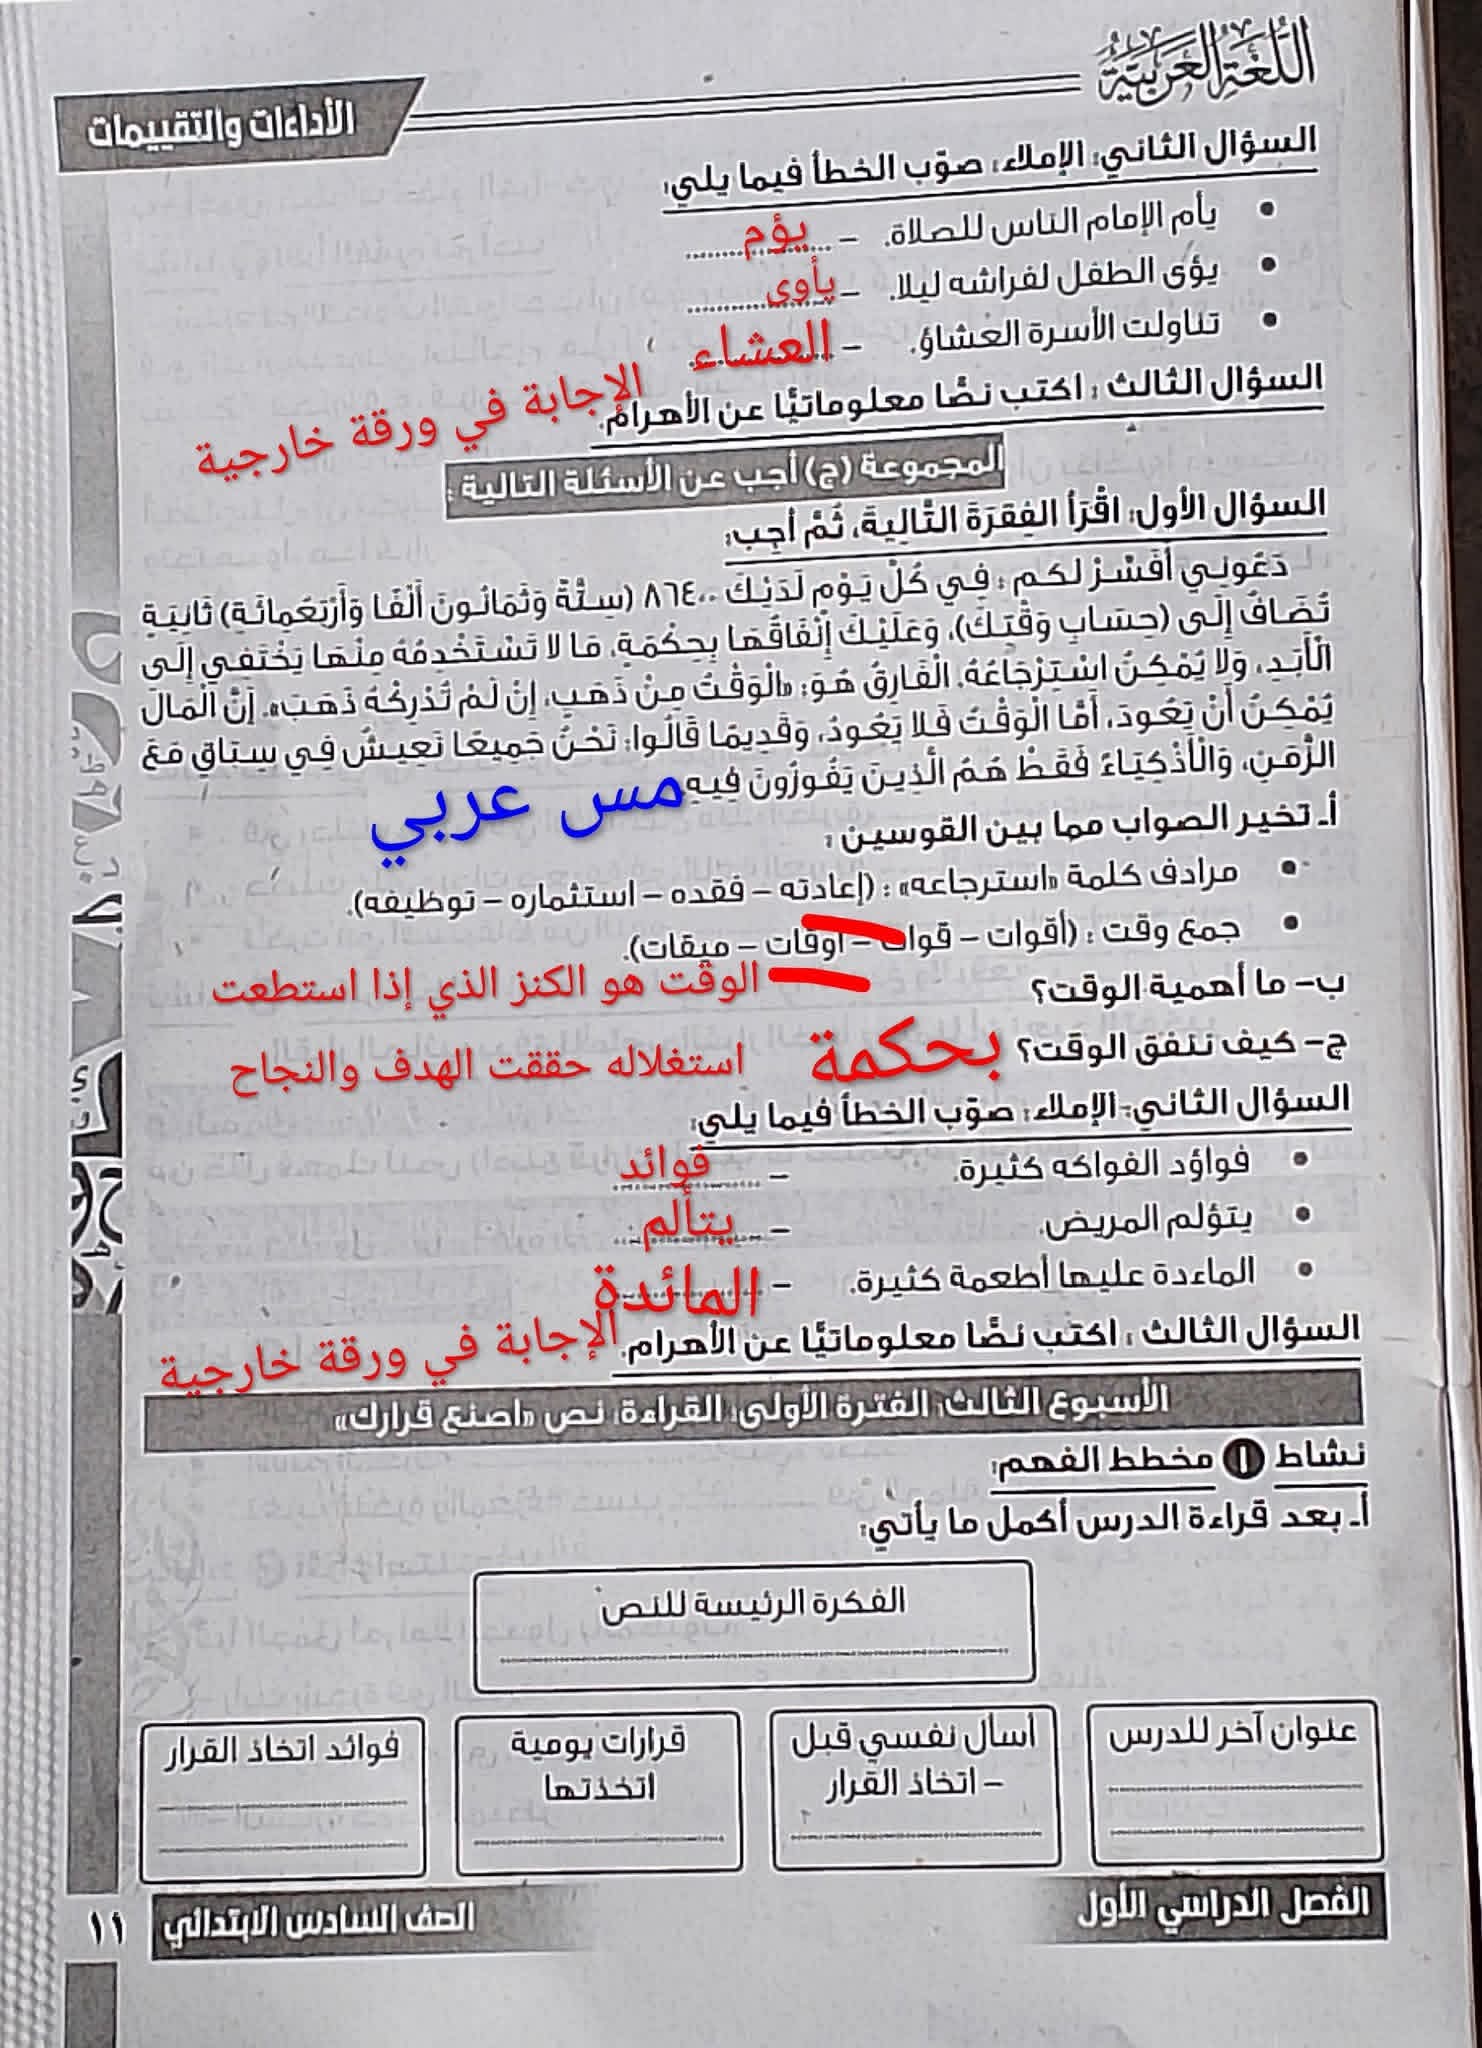 اللغة العربية
الأداءات والتقييمات
السؤال الثاني: الإملاء: صوّب الخطأ فيما يلي:
• يأم الإمام الناس للصلاة. – يؤم
• يؤى الطفل لفراشه ليلا. – يأوى
• تناولت الأسرة العشاؤ. – العشاء
السؤال الثالث : اكتب نصًّا معلوماتيًّا عن الأهرام. الإجابة في ورقة خارجية
المجموعة (ج) أجب عن الأسئلة التالية :
السؤال الأول: اقْرَأ الفِقرَةَ التَّالِيةَ، ثُمَّ أَجِب:
دَعُونِي أُفَسِّرْ لكم : فِي كُلِّ يَوْمٍ لَدَيْكَ ٨٦٤٠٠ (سِتَّةٌ وَثَمَانُونَ أَلْفًا وَأَرْبَعُمِائَةِ) ثَانِيَةٍ
تُضَافُ إِلَى (حِسَابِ وَقْتِكَ)، وَعَلَيْكَ إِنْفَاقُهَا بِحِكْمَةٍ، مَا لَا تَسْتَخْدِمُهُ مِنْهَا يَخْتَفِي إِلَى
الْأَبَدِ، وَلَا يُمْكِنُ اسْتِرْجَاعُهُ. الْفَارِقُ هُوَ: «الْوَقْتُ مِنْ ذَهَبٍ، إِنْ لَمْ تُدْرِكْهُ ذَهَبَ». إِنَّ الْمَالَ
يُمْكِنُ أَنْ يَعُودَ، أَمَّا الْوَقْتُ فَلَا يَعُودُ، وَقَدِيمًا قَالُوا: نَحْنُ جَمِيعًا نَعِيشُ فِي سِبَاقٍ مَعَ
الزَّمَنِ، وَالْأَذْكِيَاءُ فَقَطْ هُمُ الَّذِينَ يَفُوزُونَ فِيهِ
مس عربي
أ- تخير الصواب مما بين القوسين :
• مرادف كلمة «استرجاعه» : (إعادته – فقده – استثماره – توظيفه).
• جمع وقت : (أقوات – قوات – أوقات – ميقات).
ب- ما أهمية الوقت؟ الوقت هو الكنز الذي إذا استطعت
استغلاله حققت الهدف والنجاح
ج- كيف ننفق الوقت؟ بحكمة
السؤال الثاني: الإملاء: صوّب الخطأ فيما يلي:
• فواؤد الفواكه كثيرة. – فوائد
• يتؤلم المريض. – يتألم
• الماءدة عليها أطعمة كثيرة. – المائدة
السؤال الثالث : اكتب نصًّا معلوماتيًّا عن الأهرام. الإجابة في ورقة خارجية
الأسبوع الثالث: الفترة الأولى: القراءة: نص «اصنع قرارك»
نشاط ١ مخطط الفهم:
أ- بعد قراءة الدرس أكمل ما يأتي:
الفكرة الرئيسة للنص
عنوان آخر للدرس
أسأل نفسي قبل
– اتخاذ القرار
قرارات يومية
اتخذتها
فوائد اتخاذ القرار
الفصل الدراسي الأول
الصف السادس الابتدائي
١١